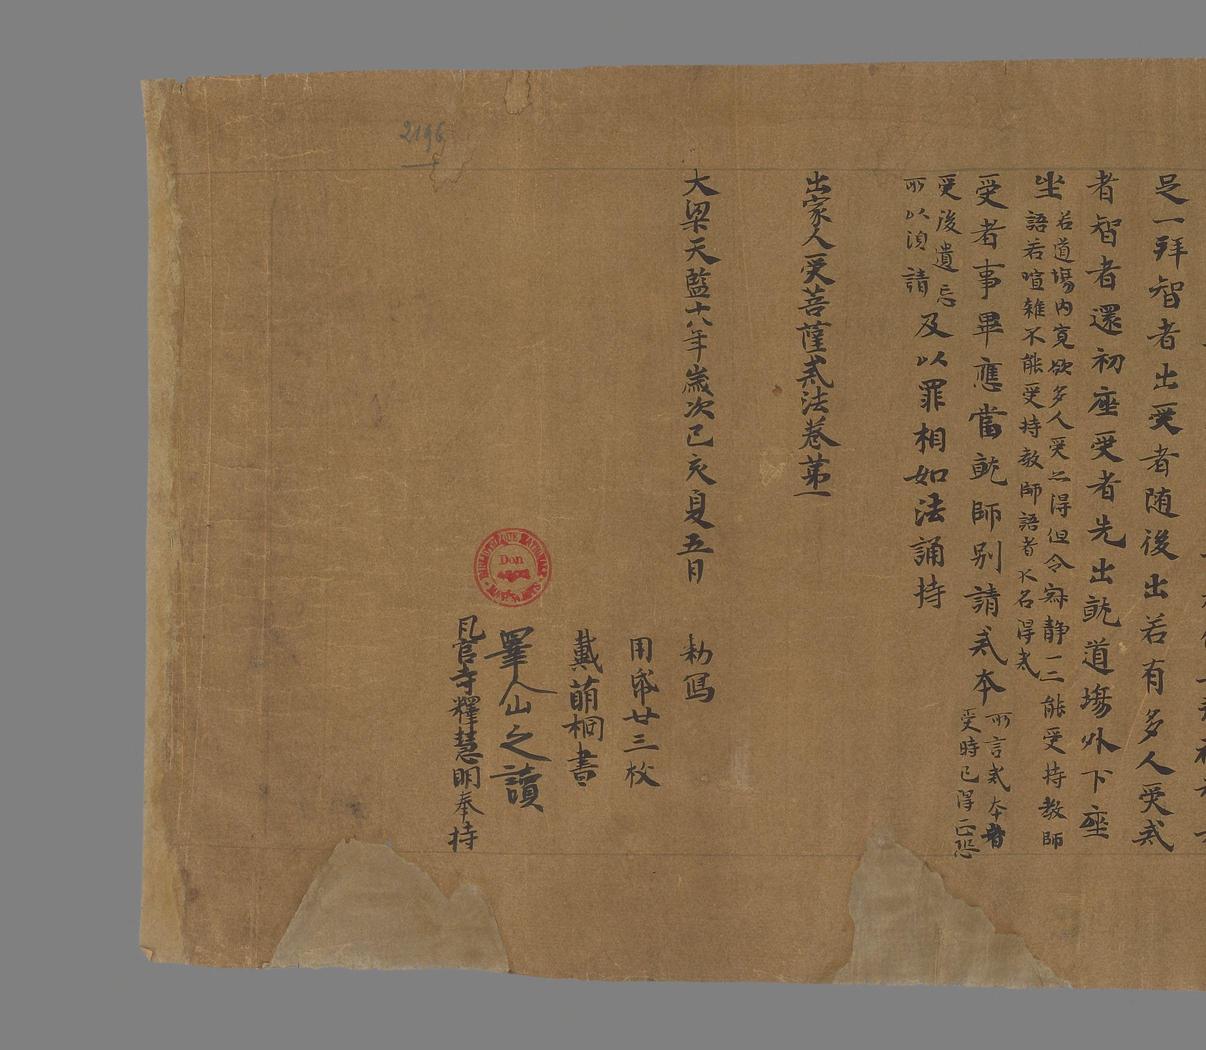 足一拜智者出受者随後出若有多人受戒
者智者還初座受者先出就道場外下座
坐
若道場内寛欲多人受之得但令寂静一二能受持教師
語若喧雜不能受持教師語者不名得戒
受者事畢應當就師別請戒本
所言戒本者
受時已得正恐
受後遺忘
所以須請
及以罪相如法誦持
出家人受菩薩戒法卷第一
大梁天監十八年歲次己亥夏五月 勑寫
用紙廿三枚
戴萌桐書
睪仚之讀
瓦官寺釋慧明奉持
2196
Don